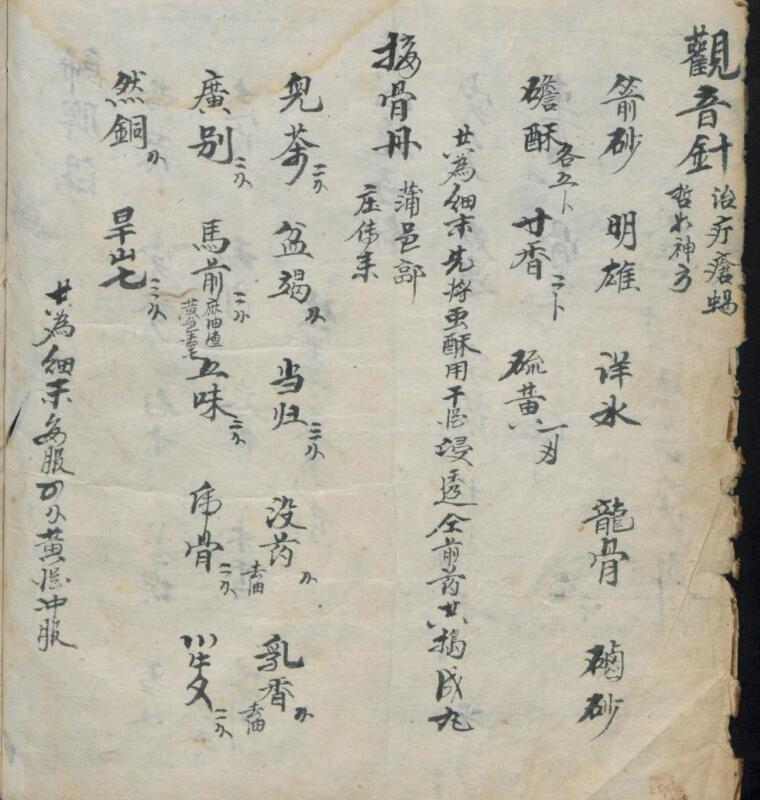 觀音針 治疗瘡蝎
哲火神方
箭砂 明雄 洋氷 龍骨 磠砂
磰酥 各五卜 廿香 二卜 硫黄 一刄
共為細末先将虫酥用干酒浸透仝前药共搗成丸
接骨丹 蒲邑部
庄傳来
児茶 二分 盆竭 当归 三分 没药 去油 乳香 去油
廣別 二分 馬前 二分 麻油渣 五味 二分 虎骨 二分 川牛夕 二分
然銅 旱山七 三分
共為細末每服 黄酒冲服